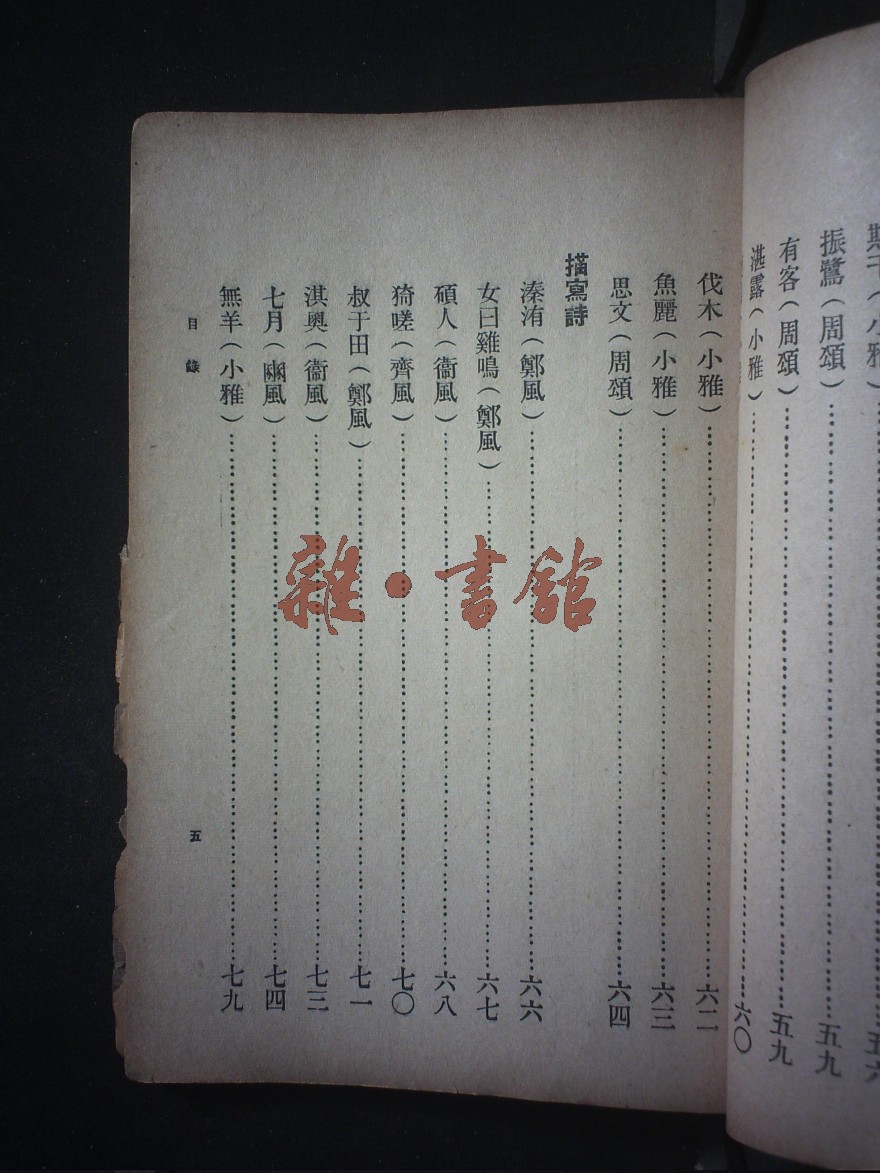 振鷺(周頌)…………五九
有客(周頌)…………五九
湛露(小雅)…………六〇
伐木(小雅)…………六二
魚麗(小雅)…………六三
思文(周頌)…………六四
描寫詩
溱洧(鄭風)…………六六
女曰雞鳴(鄭風)…………六七
碩人(衞風)…………六八
猗嗟(齊風)…………七〇
叔于田(鄭風)…………七一
淇奧(衞風)…………七三
七月(豳風)…………七四
無羊(小雅)…………七九
目錄
五
雜·書館